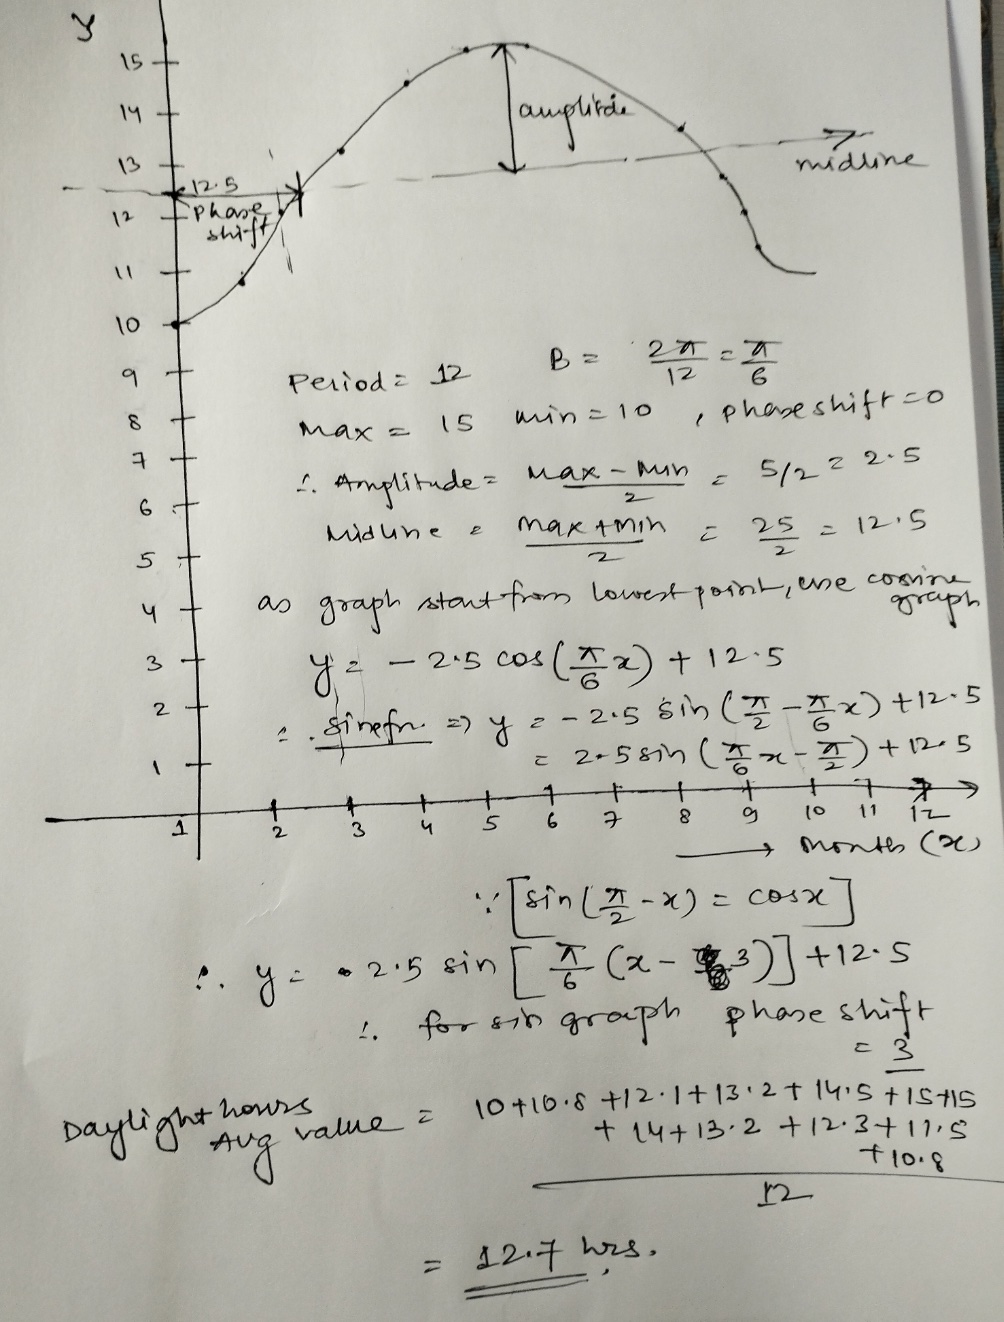 y
15
14
13
12.5
12
11
10
9
8
7
6
5
4
3
2
1
amplitde
midline
phase
shift
Period = 12 B = 2π/12 = π/6
Max = 15 min = 10 , phase shift = 0
∴ Amplitude = Max - Min / 2 = 5/2 = 2.5
Midline = Max + min / 2 = 25/2 = 12.5
as graph start from lowest point, use cosine graph
y = - 2.5 cos (π/6 x) + 12.5
∴ sine fn. => y = - 2.5 sin (π/2 - π/6 x) + 12.5
= 2.5 sin (π/6 x - π/2) + 12.5
1 2 3 4 5 6 7 8 9 10 11 12
→ month (x)
∵ [sin (π/2 - x) = cos x]
∴ y = 2.5 sin [π/6 (x - 3)] + 12.5
∴ for sin graph phase shift
= 3
Daylight hours
Avg value = 10 + 10.8 + 12.1 + 13.2 + 14.5 + 15 + 15
+ 14 + 13.2 + 12.3 + 11.5
+ 10.8
12
= 12.7 hrs.